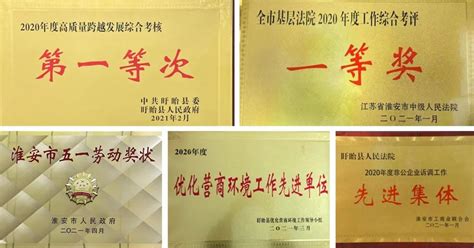 2020年度高质量跨越发展综合考核
第一等次
中共盱眙县委
盱眙县人民政府
2021年2月
全市基层法院2020年度工作综合考评
一等奖
江苏省淮安市中级人民法院
二〇二一年一月
淮安市五一劳动奖状
淮安市人民政府
二〇二一年四月
2020年度
优化营商环境工作先进单位
盱眙县优化营商环境工作领导小组
二〇二一年三月
盱眙县人民法院
2020年度非公企业诉调工作
先进集体
淮安市工商业联合会
二〇二一年一月